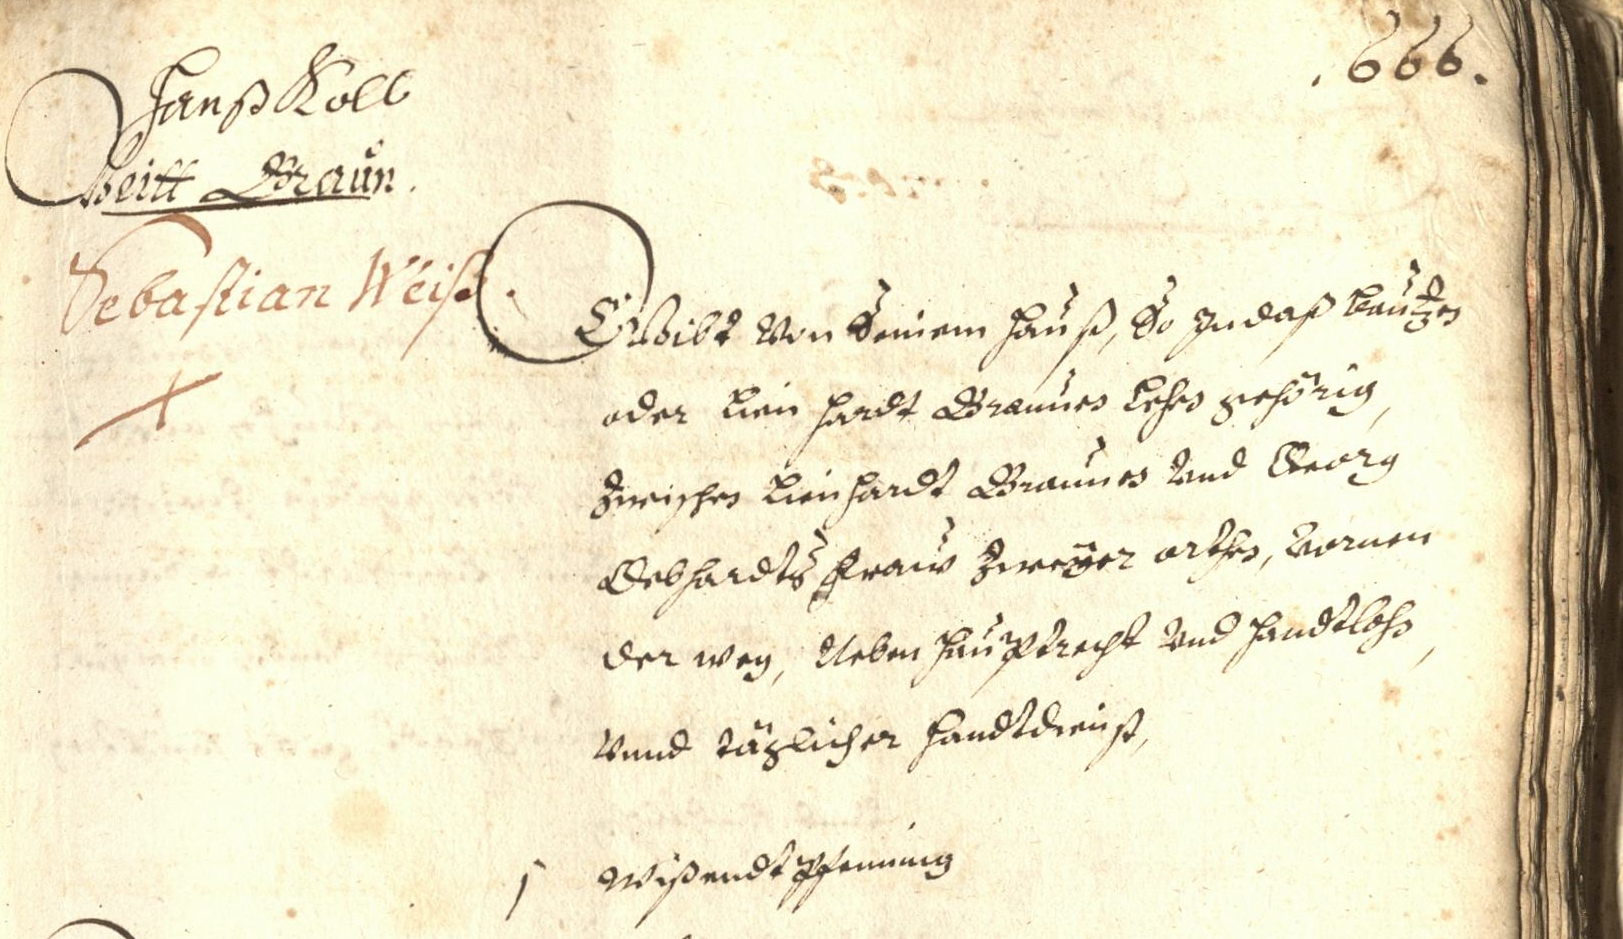 .666.
Hanß Kolb
Veitt Braun.
Sebastian Weiß.
Gibt von seinem Hauß, So in daß
oder Lienhardt Braunes Lehen gehörig,
Zwischen Lienhardt Braunes Vnd Georg
Gebhardts Fraw Zweyer orthen, Vornen
der weg, Neben Hauptrecht Vnd Handtlohn,
Vnnd täglicher Handtdienst,
1 Wißendtpfenning